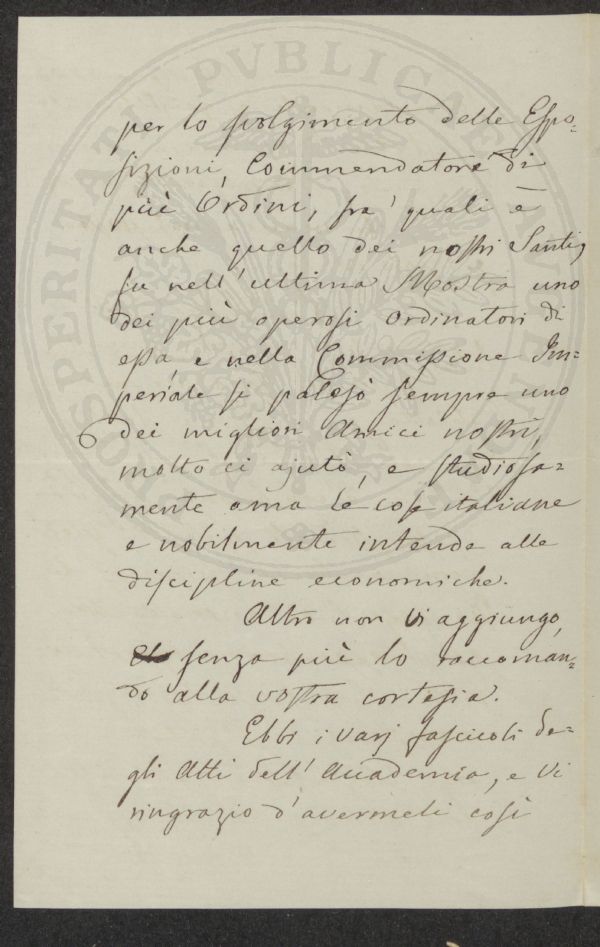 per lo svolgimento delle Espo-
sizioni, Commendatore di
più Ordini, fra' quali è
anche quello dei nostri Santi,
fu nell'ultima Mostra uno
dei più operosi ordinatori di
essa, e nella Commissione Im-
periale si palesò sempre uno
dei migliori Amici nostri,
molto ci ajutò, e studiosa-
mente ama le cose italiane
e nobilmente intende alle
discipline economiche.
Altro non vi aggiungo,
senza più lo raccoman-
do alla vostra cortesia.
Ebbi i varj fascicoli de-
gli Atti dell'Accademia, e vi
ringrazio d'avermeli così